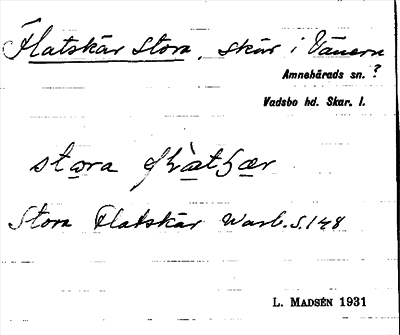 Flatskär Stora, skär i Vänern
Amnehärads sn. ?
Vadsbo hd. Skar. l.
stora
Stora Flatskär Warb. S. 148
L. MADSÉN 1931